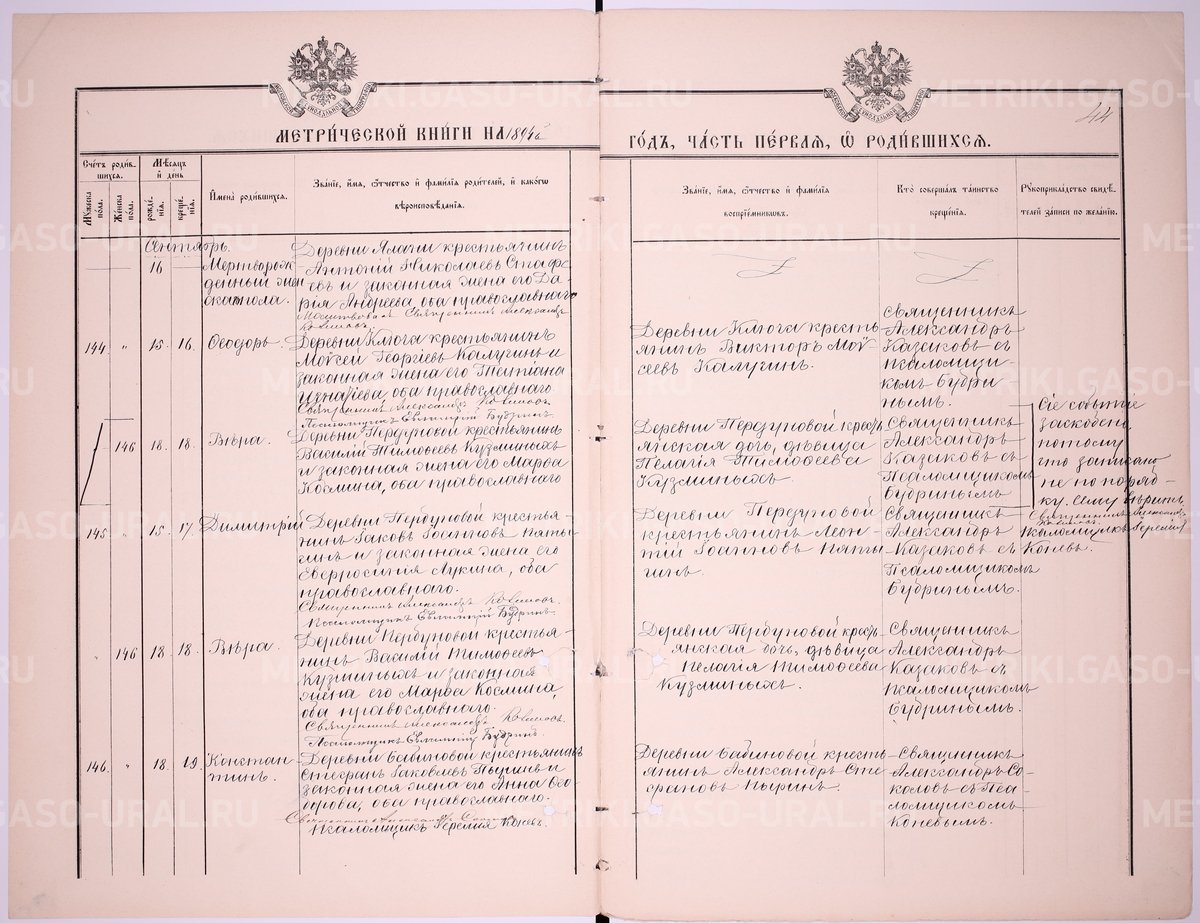 44
МЕТРИЧЕСКОЙ КНИГИ НА 1894й
ГОДЪ, ЧАСТЬ ПЕРВАЯ, Ѿ РОДИВШИХСЯ.
Счетъ родившихся.
Мужеска пола.
Женска пола.
Мѣсяцъ и день
рожденія.
крещенія.
Имена родившихся.
Званіе, имя, отчество и фамилія родителей, и какого
вѣроисповѣданія.
Званіе, имя, отчество и фамилія
воспріемниковъ.
Кто совершалъ таинство
крещенія.
Рукоприкладство свидѣтелей записи по желанію.
Сентябрь.
16
Мертворож
денный жен
ска пола.
Деревни Алачи крестьянинъ
Антоній Николаевъ
и законная жена его Да-
рія Андреева, оба православнаго
144 " 15. 16. Ѳеодоръ.
Деревни Ключа крестьянинъ
Моѵсей Георгіевъ Калугинъ и
законная жена его Татіана
Игнатіева, оба православнаго.
Священникъ Александръ Казаковъ.
Псаломщикъ Евлампій Будринъ.
Деревни Ключа кресть
янинъ Викторъ Мои
сеевъ Калугинъ.
Священникъ
Александръ
Казаковъ съ
псаломщи-
комъ Будри
нымъ.
146 18. 18. Вѣра.
Деревни Пердуновой крестьянинъ
Василій Тимоѳеевъ Кузминыхъ
и законная жена его Марѳа
Космина, оба православнаго
Деревни Пердуновой кресть
янская дочь, дѣвица
Пелагія Тимоѳеева
Кузминыхъ.
Священникъ
Александръ
Казаковъ съ
Псаломщикомъ
Будринымъ
Сіе событіе
потому
что записано
не по поряд-
ку. Сему вѣримъ
Псаломщикъ Іеремія
Коневъ.
145 " 15. 17. Димитрій
Деревни Пердуновой крестья-
нинъ Іаковъ Іоанновъ Пяты-
гинъ и законная жена его
Евфросинія Лукина, оба
православнаго.
Священникъ Александръ Казаковъ.
Псаломщикъ Евлампій Будринъ.
Деревни Пердуновой
крестьянинъ Леон-
тій Іоанновъ Пяты
гинъ.
Священникъ
Александръ
Казаковъ съ
Псаломщикомъ
Будринымъ.
" 146 18. 18. Вѣра.
Деревни Пердуновой крестья-
нинъ Василій Тимоѳеевъ
Кузминыхъ и законная
жена его Марѳа Космина,
оба православнаго.
Священникъ Александръ Казаковъ.
Псаломщикъ Евлампій Будринъ.
Деревни Пердуновой кресть-
янская дочь, дѣвица
Пелагія Тимоѳеева
Кузминыхъ.
Священникъ
Александръ
Казаковъ съ
псаломщикомъ
Будринымъ.
146. " 18. 19. Констан-
тинъ.
Деревни Бабиновой крестьянинъ
Стефанъ Іаковлевъ Пыринъ и
законная жена его Анна Ѳео
дорова, оба православнаго.
Псаломщикъ Іеремія Коневъ.
Деревни Бабиновой кресть
янинъ Александръ Сте
фановъ Пыринъ.
Священникъ
Александръ Со-
коловъ съ Пса-
ломщикомъ
Коневымъ.
METRIKI.GASO-URAL.RU